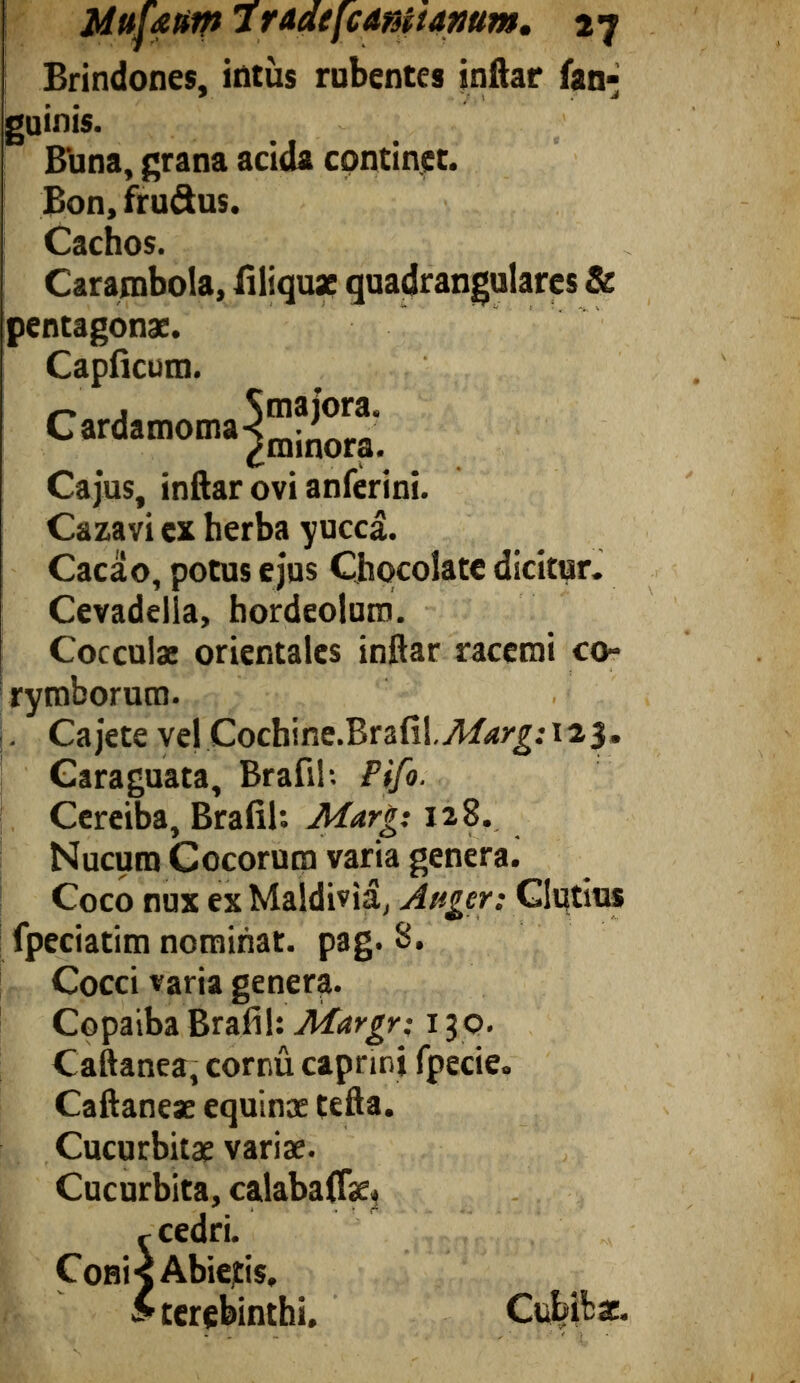 Muſæum Tradeſcantianum. 27
Brindones, intùs rubentes inſtar ſan-
guinis.
Buna, grana acida continet.
Bon, fructus.
Cachos.
Carambola, ſiliquæ quadrangulares &
pentagonæ.
Capſicum.
Cardamoma { majora.
minora.
Cajus, inſtar ovi anſerini.
Cazavi ex herba yuccâ.
Cacào, potus ejus Chocolate dicitur.
Cevadelia, hordeolum.
Cocculæ orientales inſtar racemi co-
rymborum.
Cajete vel Cochine.Braſil. Marg: 123.
Caraguata, Braſil: Piſo.
Cereiba, Braſil: Marg: 128.
Nucum Cocorum varia genera.
Coco nux ex Maldiviâ, Auger: Clutius
ſpeciatim nominat. pag. 8.
Cocci varia genera.
Copaiba Braſil: Margr: 130.
Caſtanea, cornû caprini ſpecie.
Caſtaneæ equinæ teſta.
Cucurbitæ variæ.
Cucurbita, calabaſſæ.
cedri.
Coni { Abietis.
terebinthi. Cubibæ.